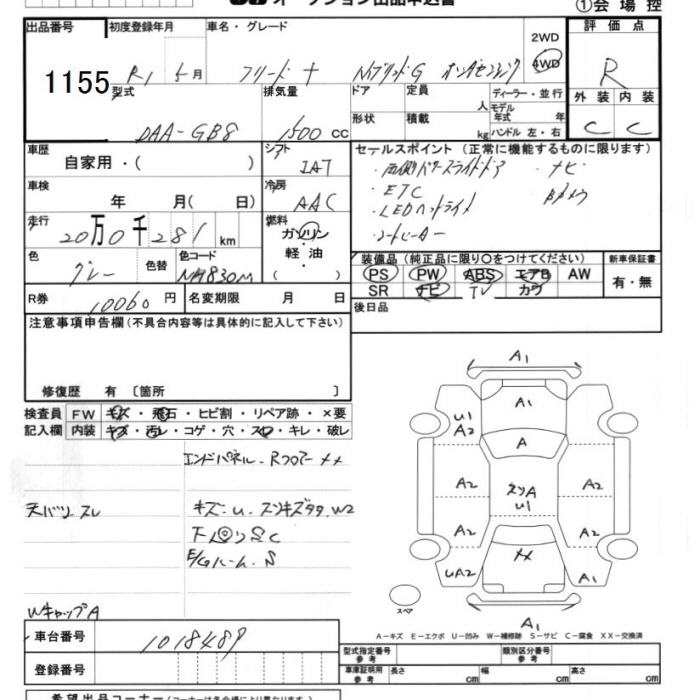 オークション出品申込書
①会場控
出品番号 初度登録年月 車名・グレード 2WD 評価点
1155 R1 5月 フリード + 4WD R
型式 排気量 ドア 定員 ディーラー・並行 外装 内装
人 モデル年式 年
DAA-GB8 1500 cc 形状 積載 kg ハンドル 左・右 C C
車歴 シフト セールスポイント(正常に機能するものに限ります)
自家用・( ) IAT ・両側パワースライドドア ・ナビ
車検 冷房 ・ETC
年 月( 日) AAC ・LEDヘッドライト
走行 燃料
20万0千281km ガソリン
色 色替 色コード 軽・油 装備品(純正品に限り○をつけてください) 新車保証書
グレー NH830M ( ) PS PW ABS エアB AW 有・無
R券 10060円 名変期限 月 日 SR ナビ TV カワ
後日品
注意事項申告欄(不具合内容等は具体的に記入して下さい)
修復歴 有〔箇所 〕
検査員 FW キズ・飛石・ヒビ割・リペア跡・×要
記入欄 内装 キズ・汚レ・コゲ・穴・スレ・キレ・破レ
エンドパネル・Rフロアー メメ
天バリ スレ キズ・U
E/Gルーム S
Wキャップ A
A1
A1
U1
A2
A
A2 A2
U1
A2 A2
UA2 A1
スペア
A1
A-キズ E-エクボ U-凹み W-補修跡 S-サビ C-腐食 XX-交換済
車台番号 1018489
型式指定番号 参考 類別区分番号 参考
登録番号 車庫証明用 参考 長さ cm 幅 cm 高さ cm
希望出品コーナー